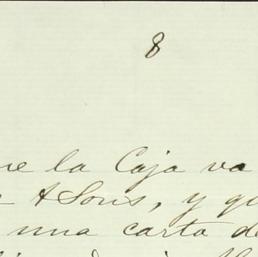 8
la Caja va
& Sons, y
una carta